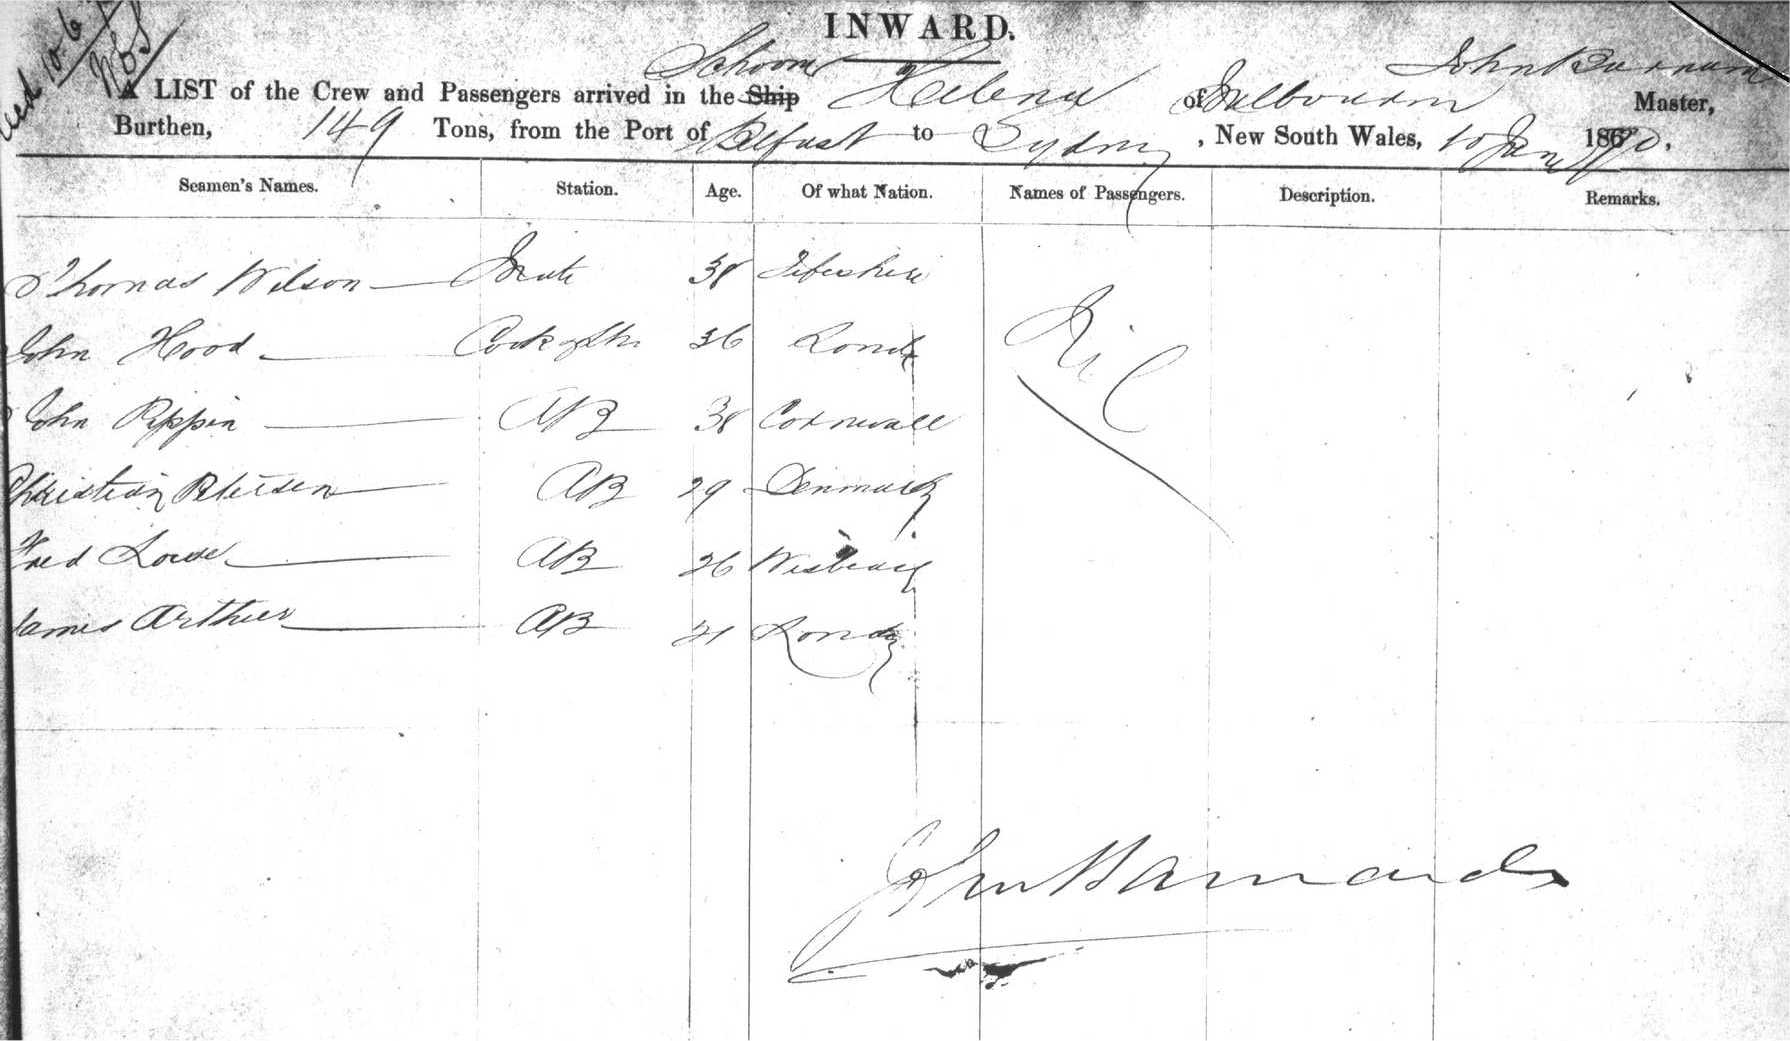 INWARD.
Schooner John Barnard
A LIST of the Crew and Passengers arrived in the Ship Helena of Melbourne Master,
Burthen, 149 Tons, from the Port of Belfast to Sydney, New South Wales, 10 June 1870.
Seamen's Names. Station. Age. Of what Nation. Names of Passengers. Description. Remarks.
Thomas Wilson Mate 38 Fifeshire
John Hood 36 London Nil
John Rippin AB 38 Cornwall
Christian Petersen AB 29 Denmark
Fred Lowe AB 26
James Arthur AB 21 London
John Barnard